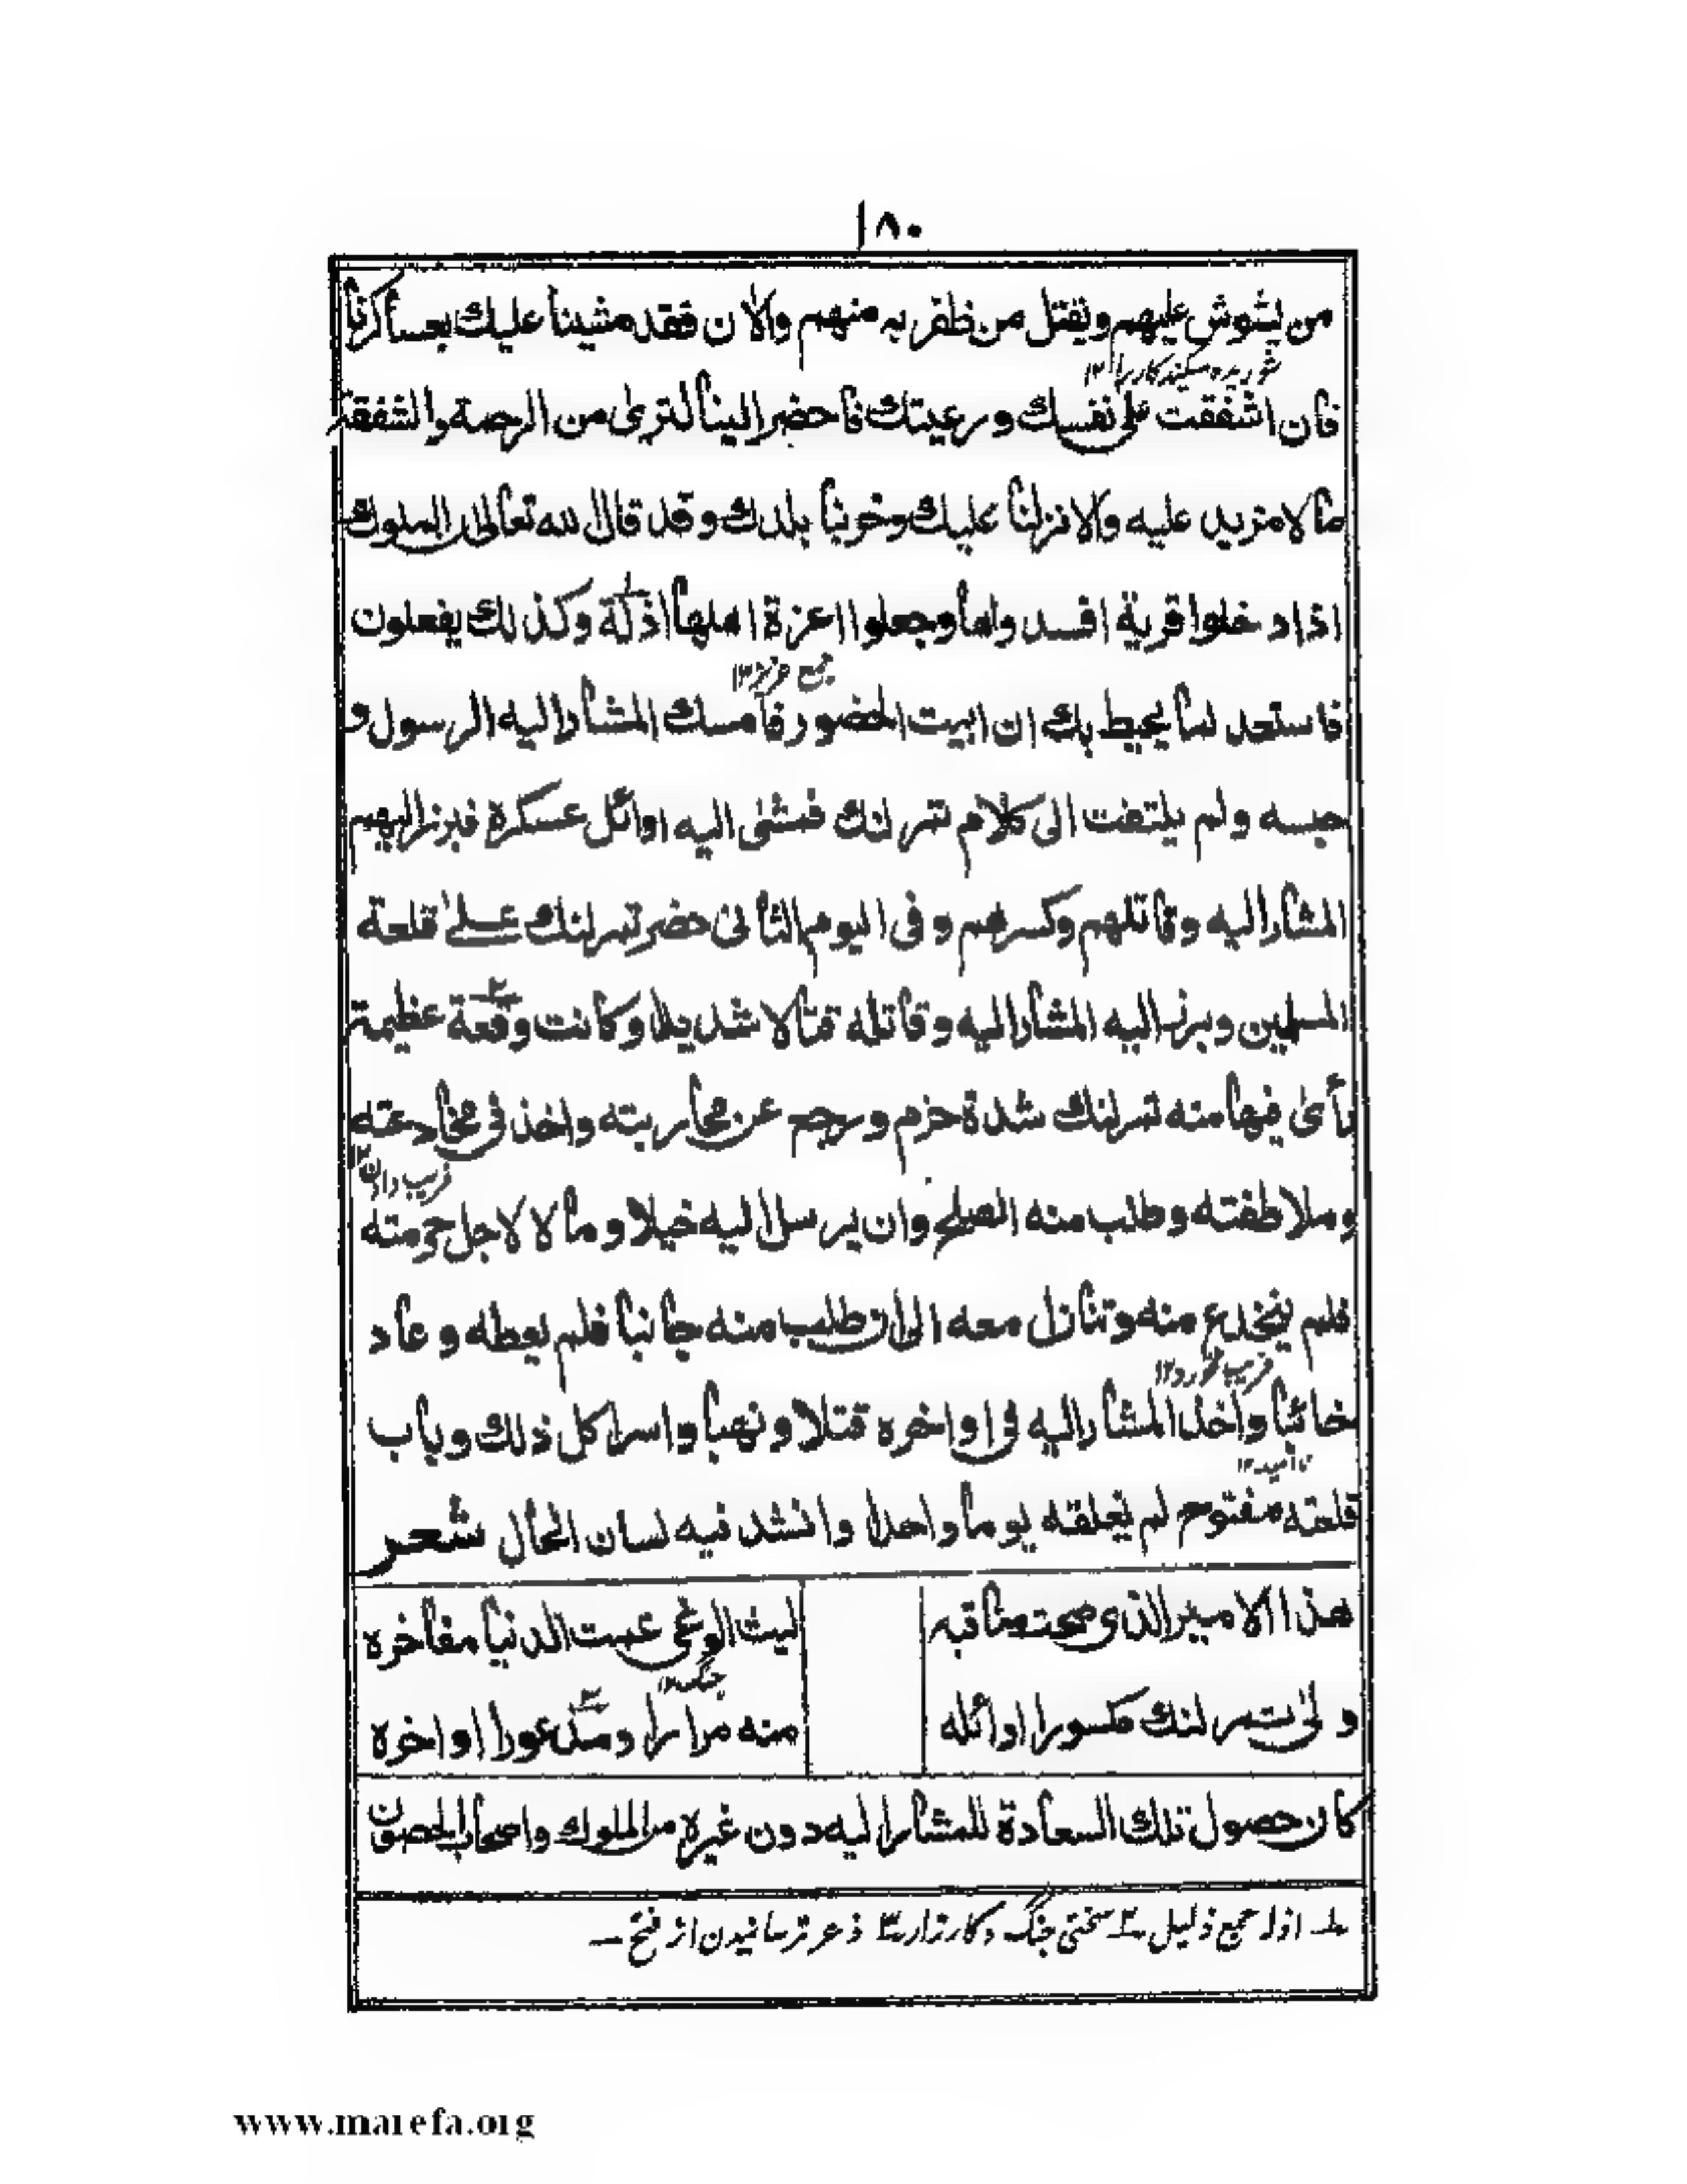 ١٨٠
من يشوش عليهم ويقتل من ظفر به منهم والان فقد مشينا عليك بعساكرنا
فان اشفقت على نفسك ورعيتك فاحضر الينا لترى من الرحمة والشفقة
مالا مزيد عليه والا نزلنا عليك وخربنا بلدك وقد قال الله تعالى ان الملوك
اذا دخلوا قرية افسدوها وجعلوا اعزة اهلها اذلة وكذلك يفعلون
جمع عزيز ١٢
فاستعد لما يحيط بك ان ابيت الحضور فامسك المشار اليه الرسول و
حبسه ولم يلتفت الى كلام تمرلنك فمشى اليه اوائل عسكره فبرز اليهم
المشار اليه وقاتلهم وكسرهم وفى اليوم الثانى حضر تمرلنك على قلعة
المسلمين وبرز اليه المشار اليه وقاتله قتالا شديدا وكانت وقعة عظيمة
رأى فيها منه تمرلنك شدة حزم ورجع عن محاربته واخذ فى مخادعته
فريب دادن ١٢
وملاطفته وطلب منه الصلح وان يرسل اليه خيلا ومالا لاجل حرمته
فلم ينخدع منه وتنازل معه الى ان طلب منه جانبا فلم يعطه وعاد
فريب خورد ١٢
خائبا واخذ المشار اليه فى اواخره قتلا ونهبا واسرا كل ذلك وباب
نا أميد ١٢
قلعته مفتوح لم يغلقه يوما واحدا وانشد فيه لسان الحال شعر
هذا الامير الذى صحت مناقبه ليث الوغى عمت الدنيا مفاخره
جنگ ١٢
ولى تمرلنك مكسورا اوائله منه مرارا ومذعورا اواخره
كان حصول تلك السعادة للمشار اليه دون غيره من الملوك واصحاب الحصون
١ـ اذلہ جمع ذليل ٢ـ سختى جنگ و كارزار ٣ـ ذعر ترسانيدن از فتح ـ
www.marefa.org